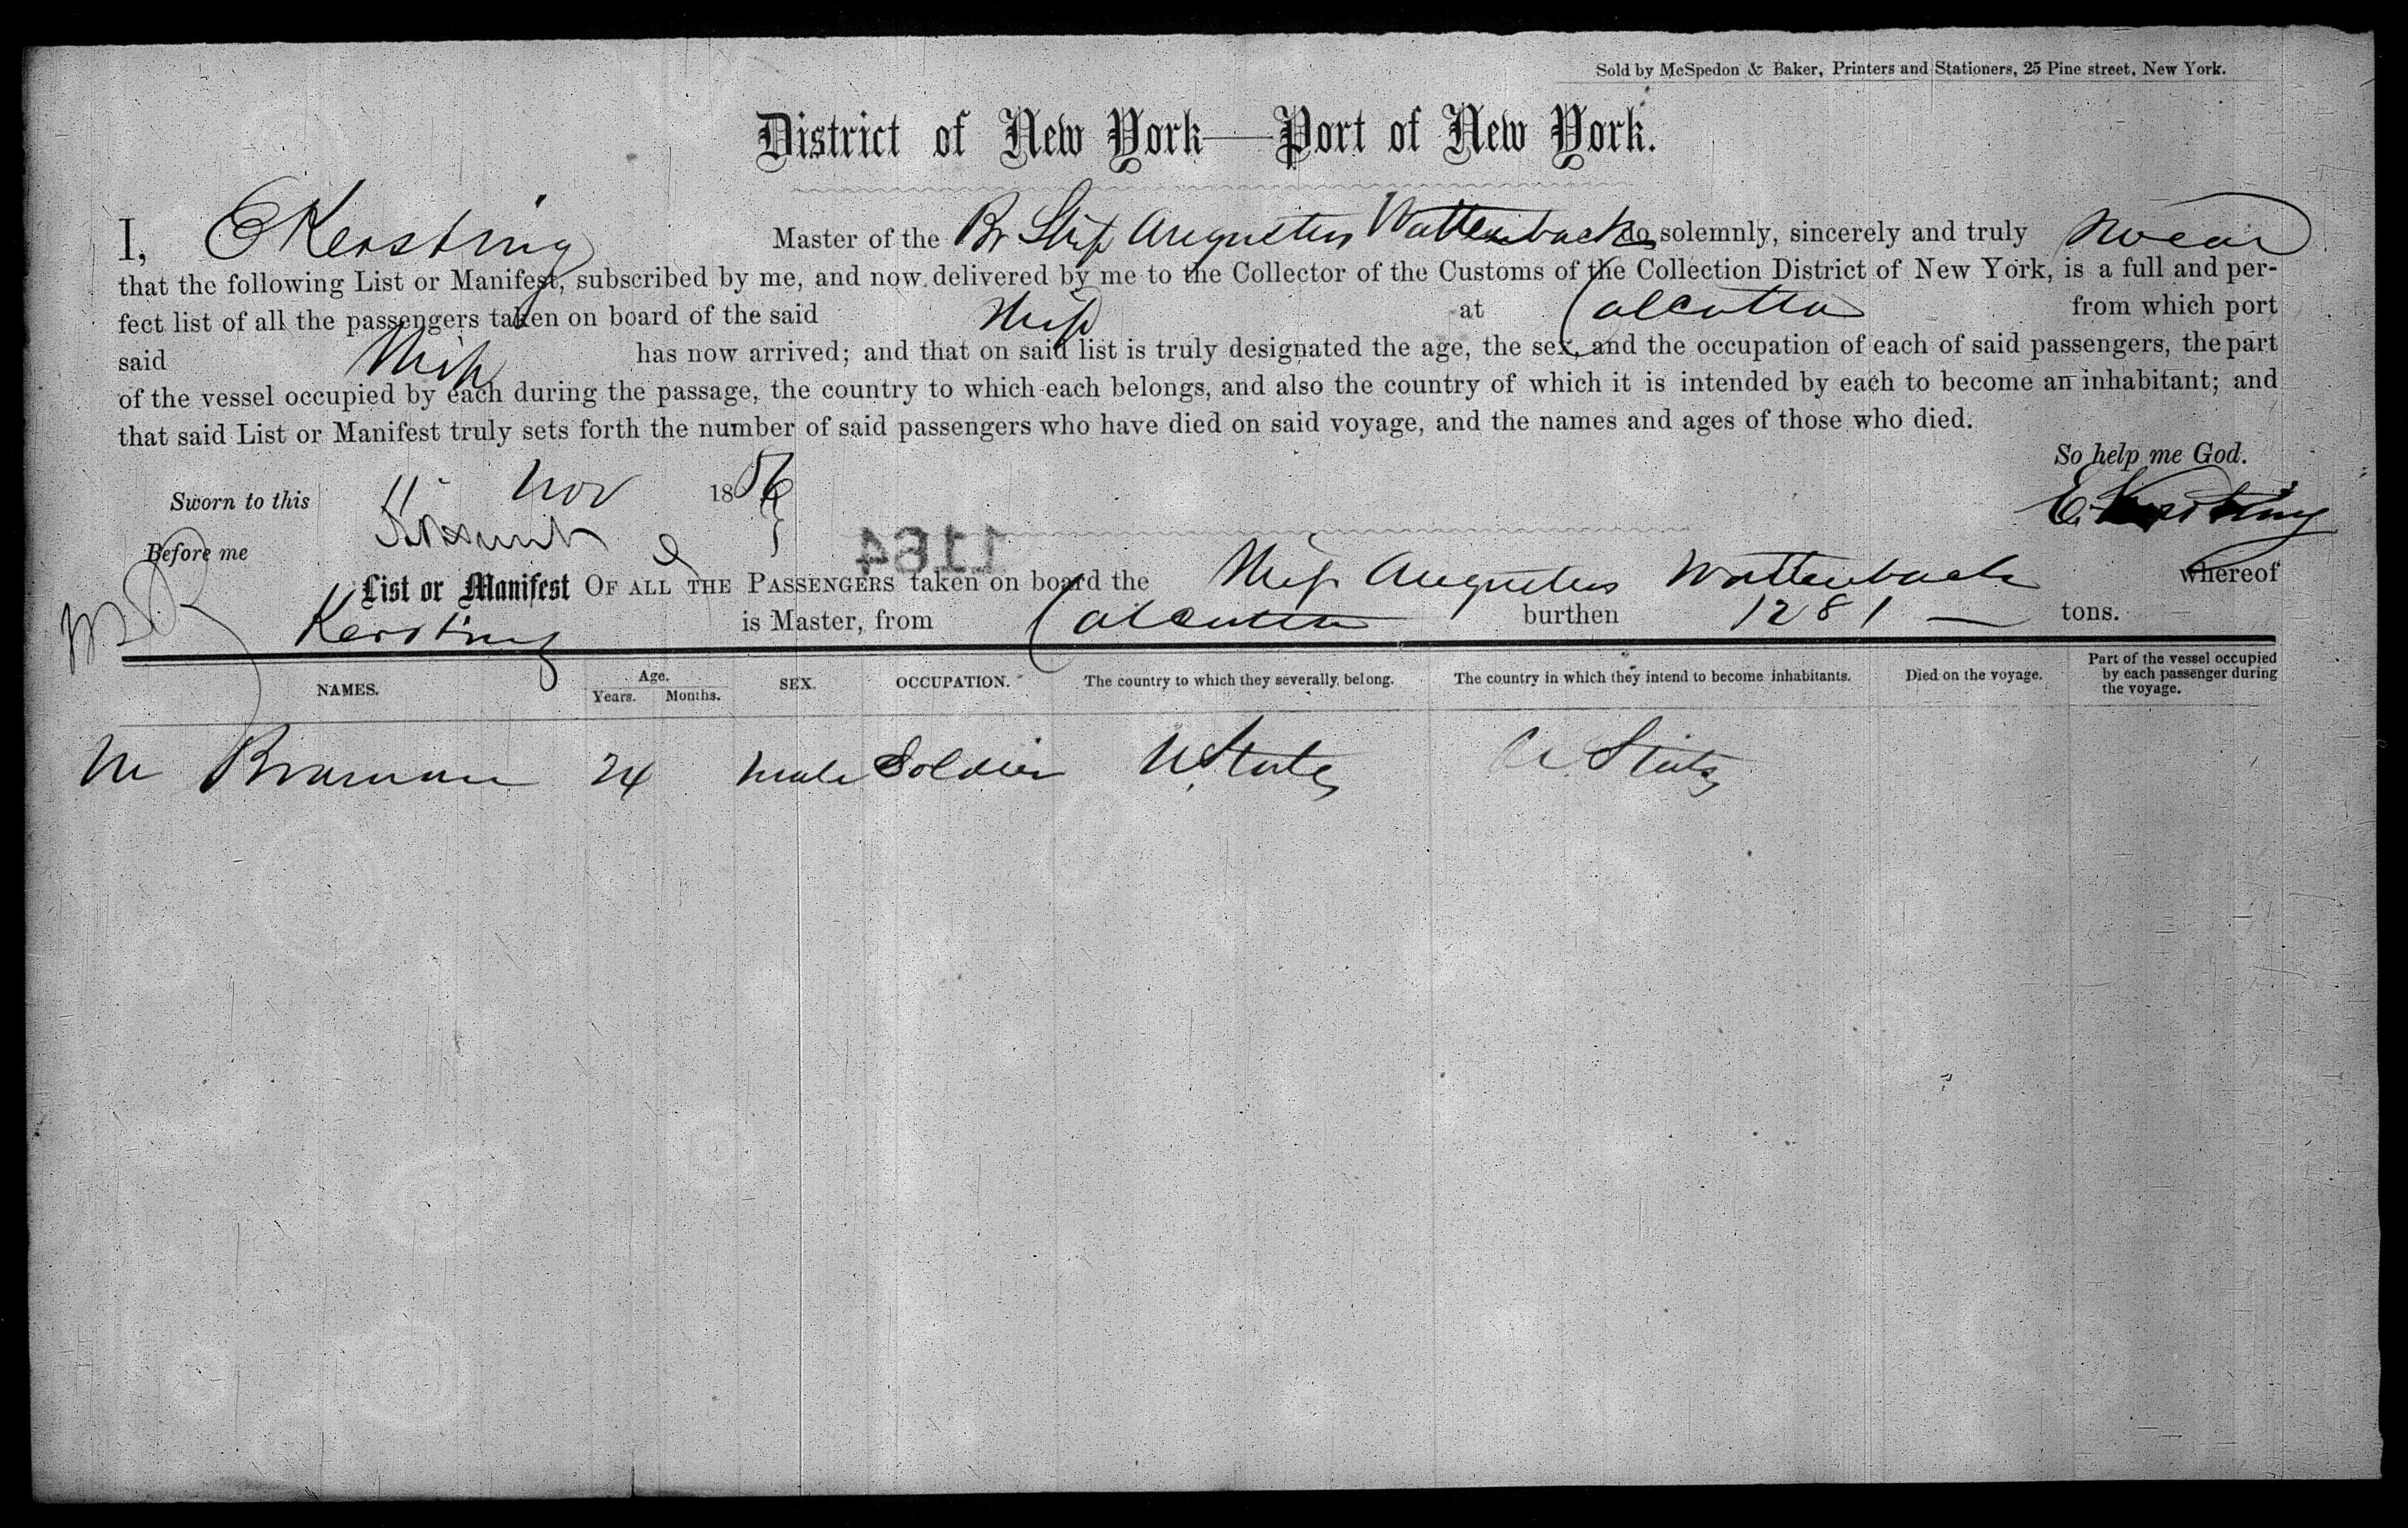 Sold by McSpedon & Baker, Printers and Stationers, 25 Pine street, New York.
District of New York—Port of New York.
I, E Kersting Master of the Br Ship Augustus Wattenbach do solemnly, sincerely and truly swear
that the following List or Manifest, subscribed by me, and now delivered by me to the Collector of the Customs of the Collection District of New York, is a full and per-
fect list of all the passengers taken on board of the said Ship at Calcutta from which port
said Ship has now arrived; and that on said list is truly designated the age, the sex, and the occupation of each of said passengers, the part
of the vessel occupied by each during the passage, the country to which each belongs, and also the country of which it is intended by each to become an inhabitant; and
that said List or Manifest truly sets forth the number of said passengers who have died on said voyage, and the names and ages of those who died.
So help me God.
Sworn to this 11 Nov 1856
E. Kersting
Before me
1164
List or Manifest OF ALL THE PASSENGERS taken on board the Ship Augustus Wattenbach whereof
Kersting is Master, from Calcutta burthen 1281 tons.
NAMES. Age. Years. Months. SEX. OCCUPATION. The country to which they severally belong. The country in which they intend to become inhabitants. Died on the voyage. Part of the vessel occupied by each passenger during the voyage.
M Braman 24 male Soldier U. States U. States